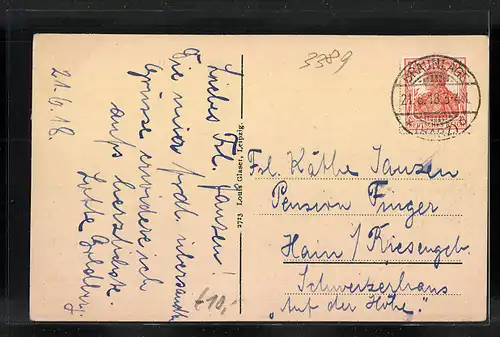 21.6.18.
Liebes Frl. Jansen!
Die mir frdl. übersandt.
Grüsse erwidere ich
aufs herzlichste.
Lotte
2723 Louis Glaser, Leipzig.
3389
BRAUNLAGE
21.6.18.3
(HARZ)
Frl. Käthe Jansen
Pension Finger
Hain/Riesengeb.
Schweizerhaus
"Auf der Höhe".
€10,-